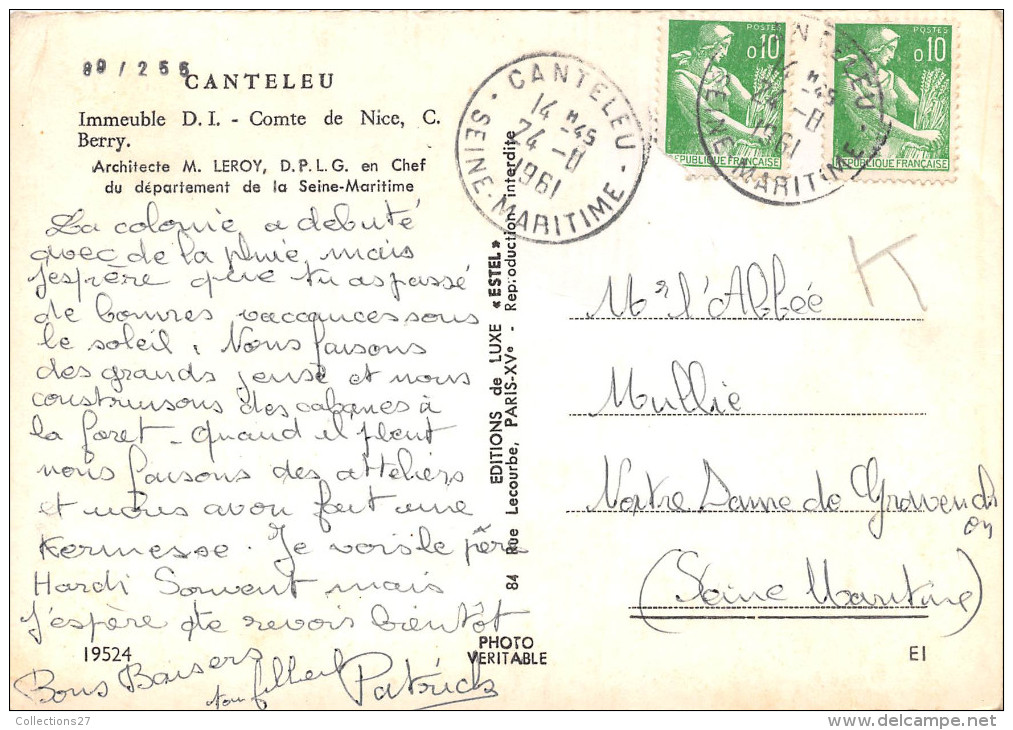 89/256
CANTELEU
Immeuble D. I. - Comte de Nice, C.
Berry.
Architecte M. LEROY, D.P.L.G. en Chef
du département de la Seine-Maritime
La colonie a débuté
avec de la pluie mais
j'espère que tu as passé
de bonnes vacances sous
le soleil, Nous faisons
des grands jeuse et nous
construisons des cabanes à
la foret - quand il pleut
nous faisons des atteliers
et nous avon fait une
Kermesse. Je vois le père
Hardi Souvent mais
j'espère te revoir bientôt
Bons Baisers
ton filleul Patrick
19524
EDITIONS de LUXE «ESTEL»
84 Rue Lecourbe, PARIS-XVe - Reproduction interdite
PHOTO
VERITABLE
CANTELEU
14 H 45
24 -8
1961
SEINE-MARITIME
POSTES
0,10
REPUBLIQUE FRANÇAISE
POSTES
0,10
REPUBLIQUE FRANÇAISE
CANTELEU
14 H 45
24 -8
1961
SEINE-MARITIME
K
Mr l'Abbée
Mullie
Notre Dame de Gravench
on
(Seine Maritime)
EI
Collections27
delcampe.net